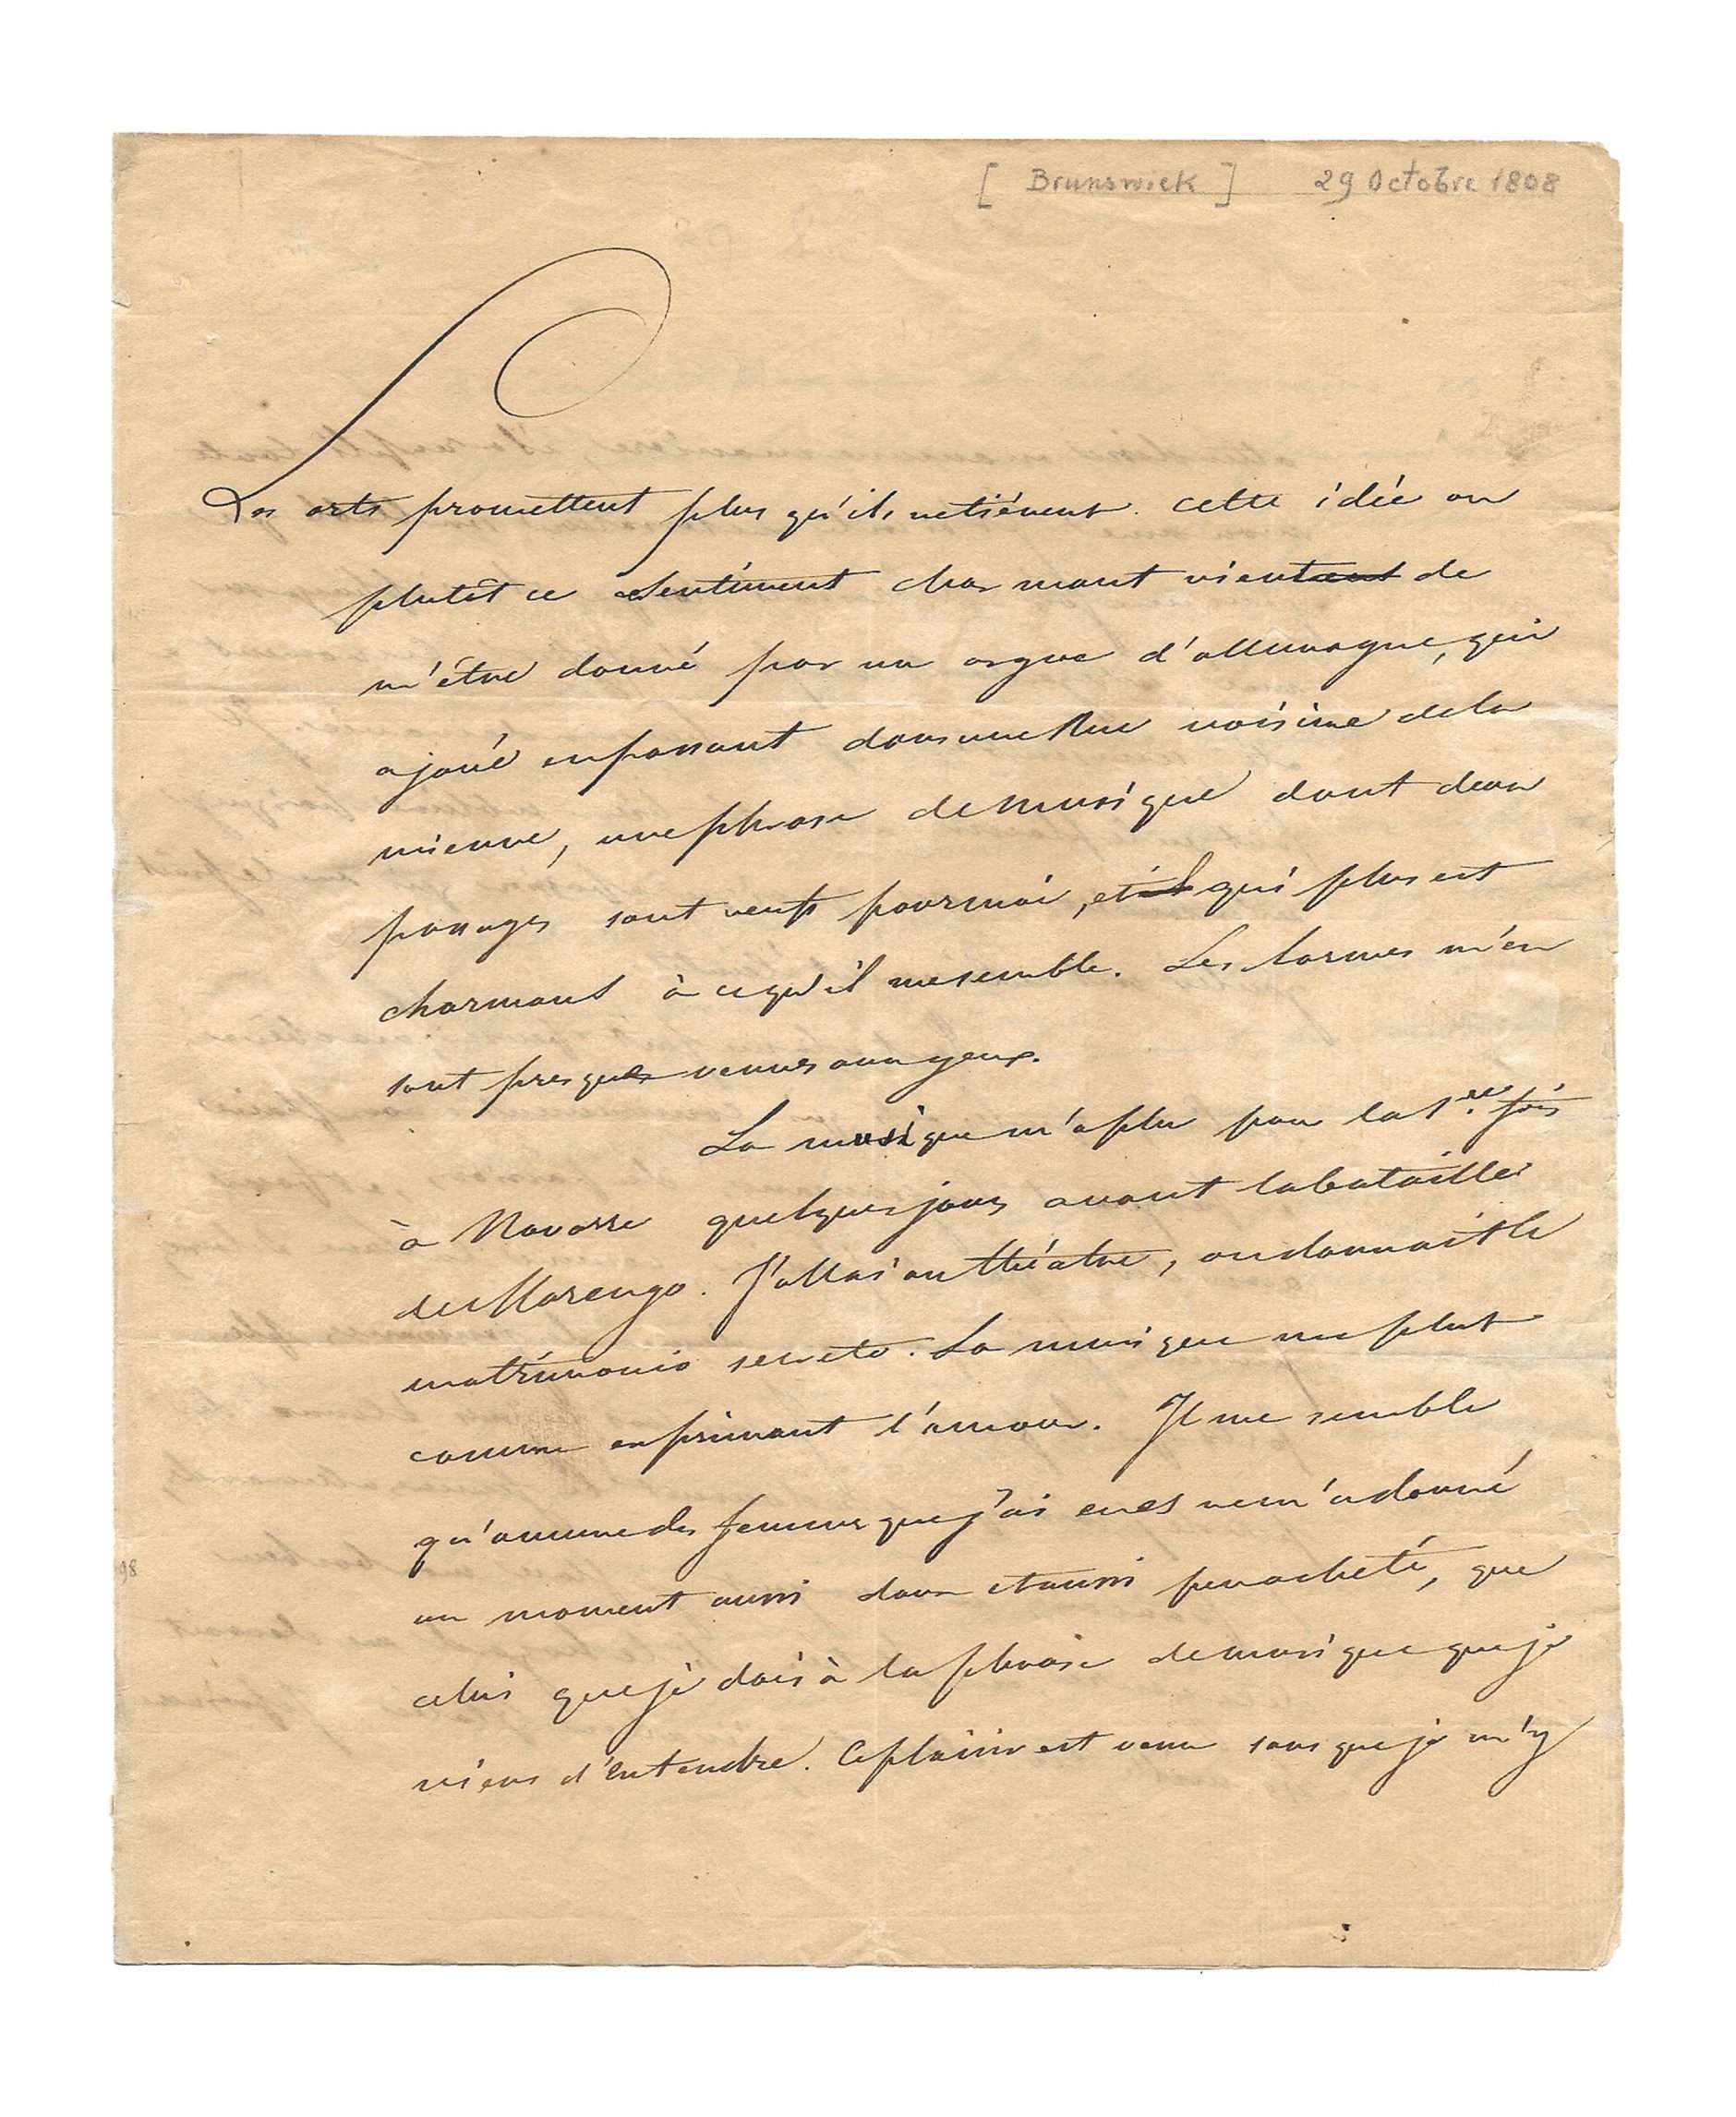 [ Brunswick ] 29 Octobre 1808
Les arts promettent plus qu'ils netiénent. cette idée ou
plutôt ce sentiment charmant vient de
m'être donné par un orgue d'allemagne, qui
ajoué enpassant dansune Rue voisine dela
mienne, unephrase demusique dont deux
passages sont neufs pourmoi, et qui plus est
charmans à cequ'il mesemble. Les larmes m'en
sont presque venues aux yeux.
La musique m'aplu pour la 1re fois
à Novarre quelquesjours avant labataille
de Marengo. J'allai au théatre, ondonnait le
matrimonio secreto. La musique me plut
comme exprimant l'amour. Il me semble
qu'aucunedes femmes quej'ai eues nem'adonné
un moment aussi doux etaussi peuacheté, que
celui queje dois à laphrase demusique queje
viens d'entendre. Ceplaisir est venu sans queje m'y
98